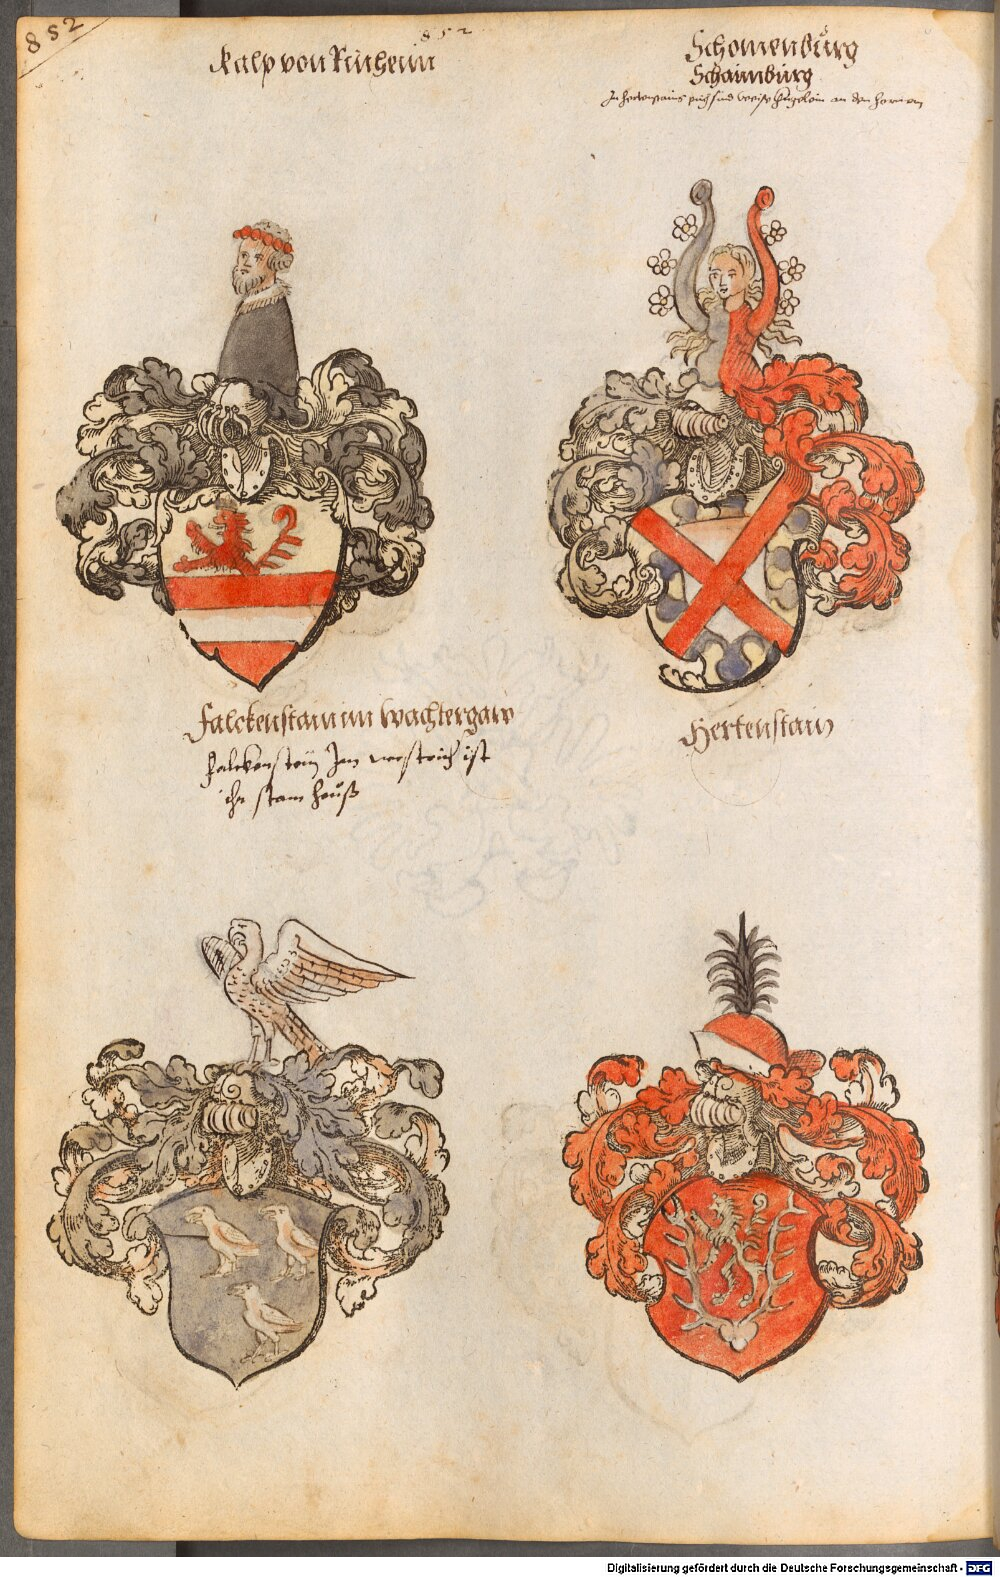 852
852
Kalp von Rinheim
Schomenbůrg
Schaimburg
In hertenstains sind weiß an den hornern
Falckenstain im Wachtergaw
Falckenstein Im ist
ihr stam heuß
Hertenstain
Digitalisierung gefördert durch die Deutsche Forschungsgemeinschaft - DFG